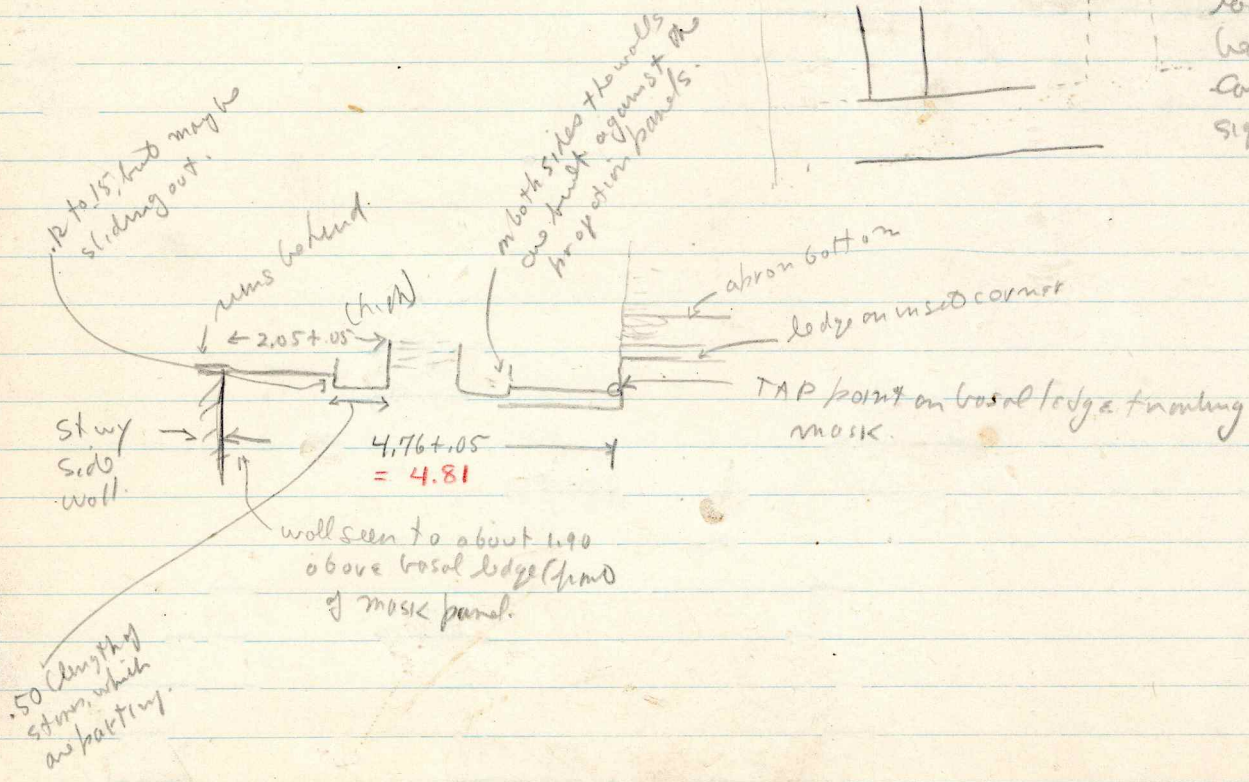 .12 to .15, but may be
sliding out.
runs behind
(high)
2.05 + .05
on both sides the walls
are built against the
panels.
apron bottom
ledge on inset corner
TAP point on basal ledge fronting
mask.
stwy
side
wall.
4.76 + .05
= 4.81
wall seen to about 1.90
above basal ledge (front)
of mask panel.
.50 (length of
stones, which
are parting.